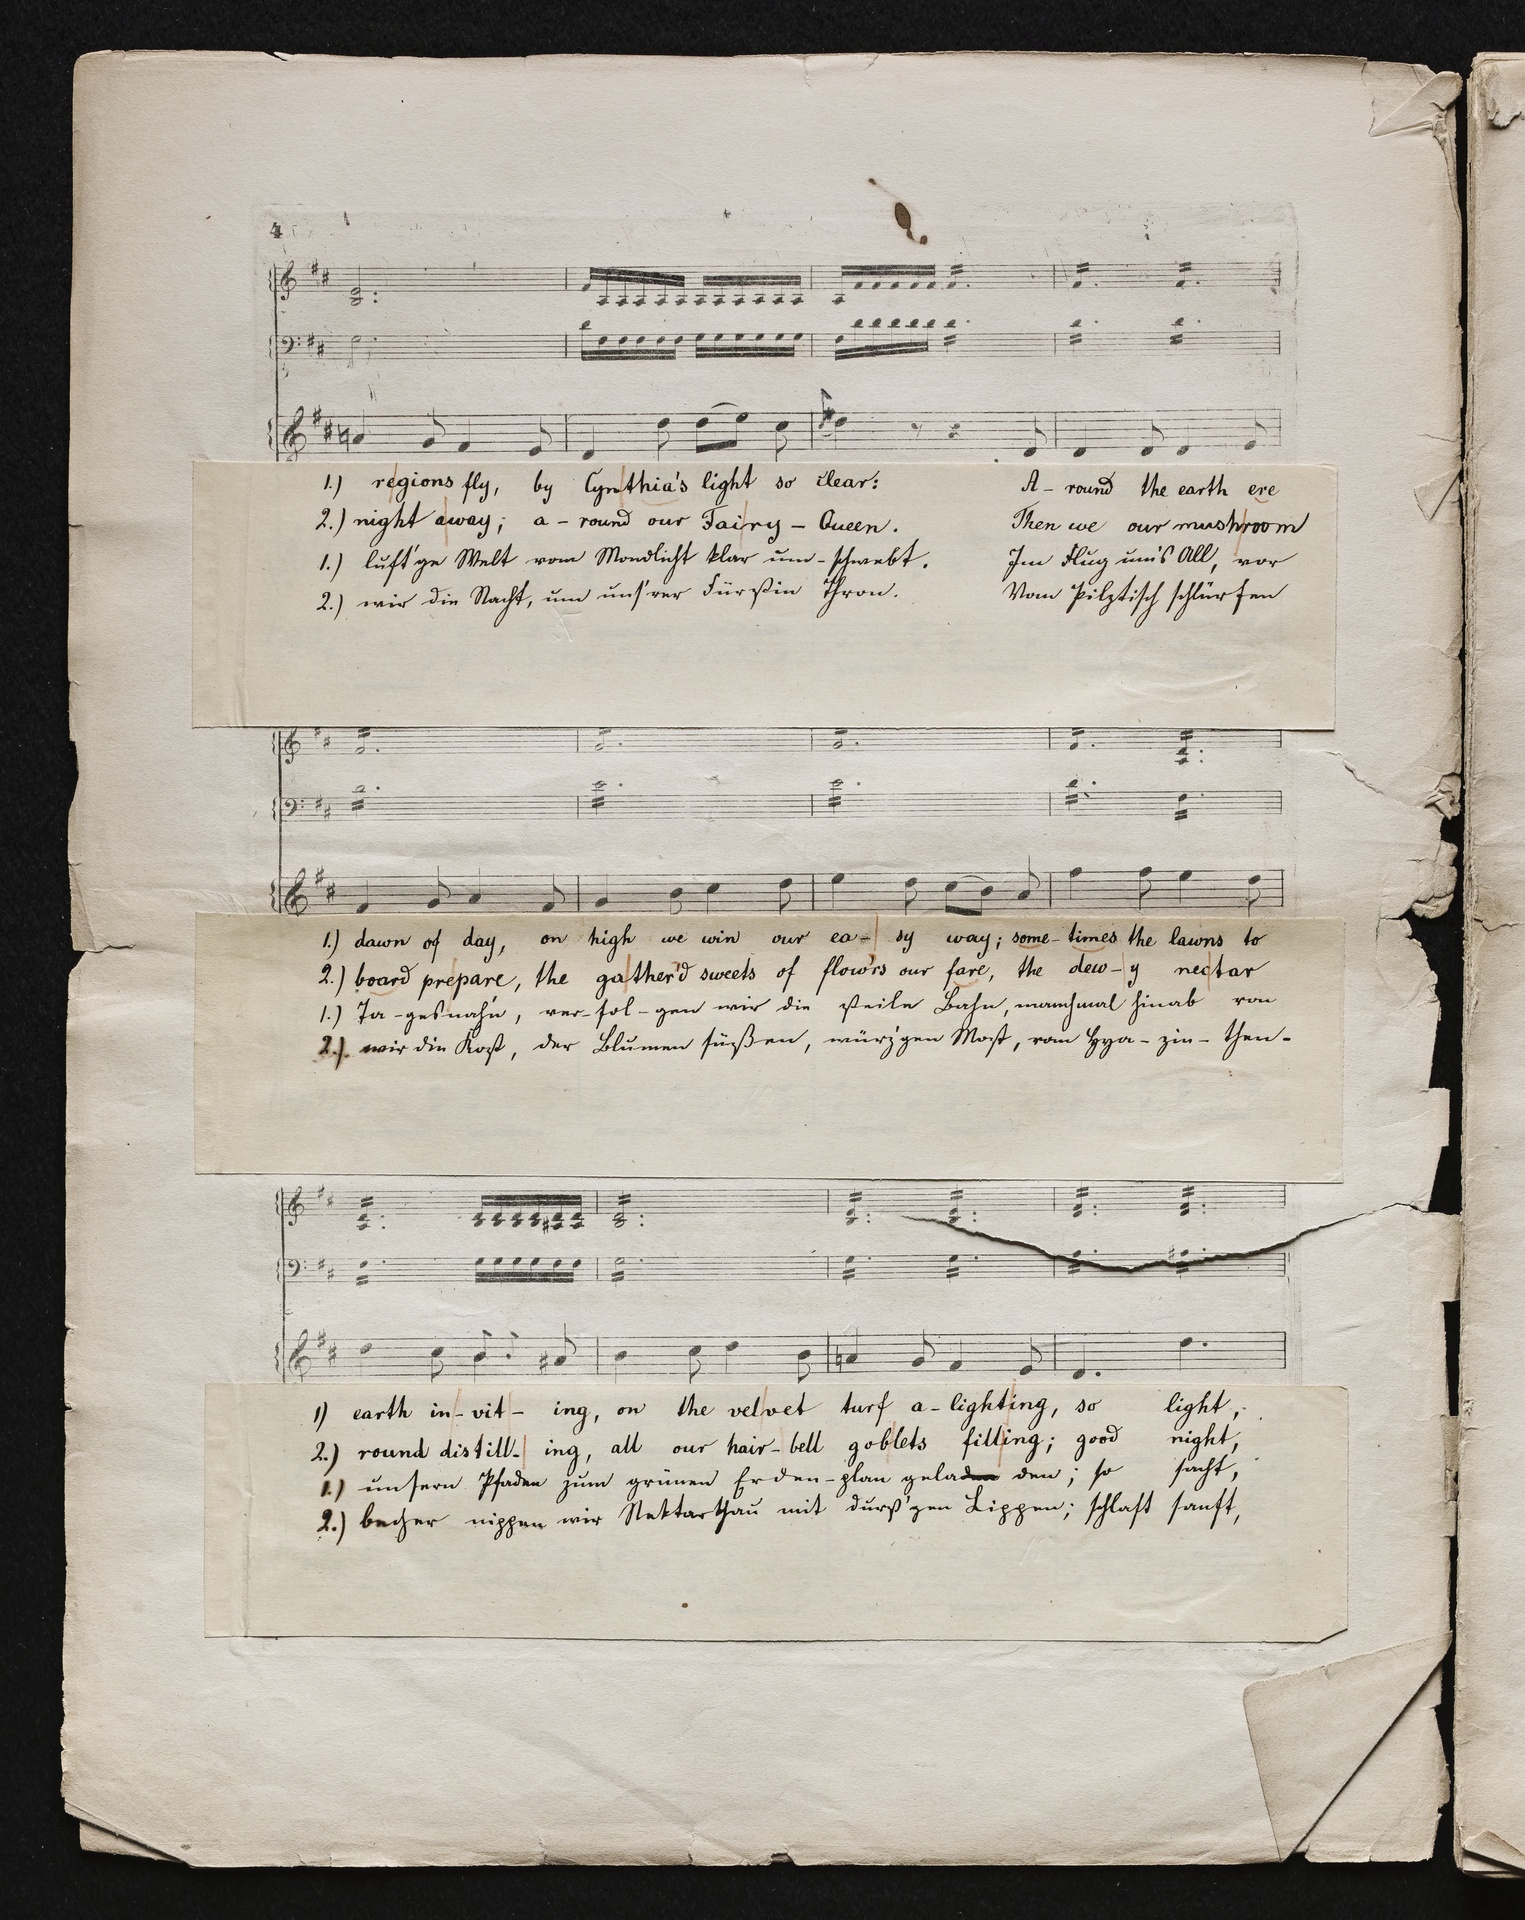 4
1.) regions fly, by Cynthia's light so clear: A - round the earth ere
2.) night away; a - round our Fairy - Queen. Then we our mushroom
1.) luft'ge Welt vom Mondlicht klar um - schwebt. Im Flug um's All, vor
2.) wir die Nacht, um uns'rer Fürstin Thron. Vom Pilztisch schlürfen
1.) dawn of day, on high we win our ea - sy way; some - times the lawns to
2.) board prepare, the gather'd sweets of flow'rs our fare, the dew - y nectar
1.) Ta - gesnah'n, ver - fol - gen wir die steile Bahn, manchmal hinab von
2.) wir die Kost, der Blumen süßen, würz'gen Most, vom Hya - zin - then -
1) earth in - vit - ing, on the velvet turf a - lighting, so light,
2.) round distill - ing, all our hair - bell goblets filling; good night,
1.) unsern Pfaden zum grünen Erden - plan gela den; so sacht,
2.) becher nippen wir Nektarthau mit durst'gen Lippen; schlaft sanft,